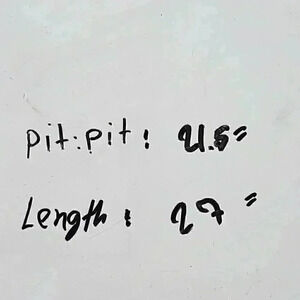 pit:pit : 21.5"
Length : 27"